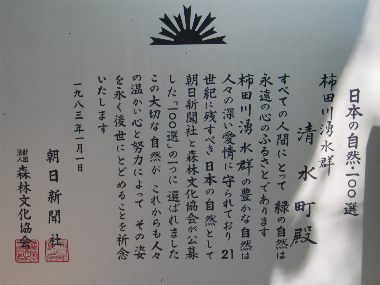 日本の自然・一〇〇選
柿田川湧水群
清水町殿
すべての人間にとって 緑の自然は
永遠の心のふるさとであります
柿田川湧水群の豊かな自然は
人々の深い愛情に守られており 21
世紀に残すべき日本の自然として
朝日新聞社と森林文化協会が公募
した「一〇〇選」の一つに選ばれました
この大切な自然が これからも人々
の温かい心と努力によって その姿
を永く後世にとどめることを祈念
いたします
一九八三年一月一日
朝日新聞社
森林文化協会